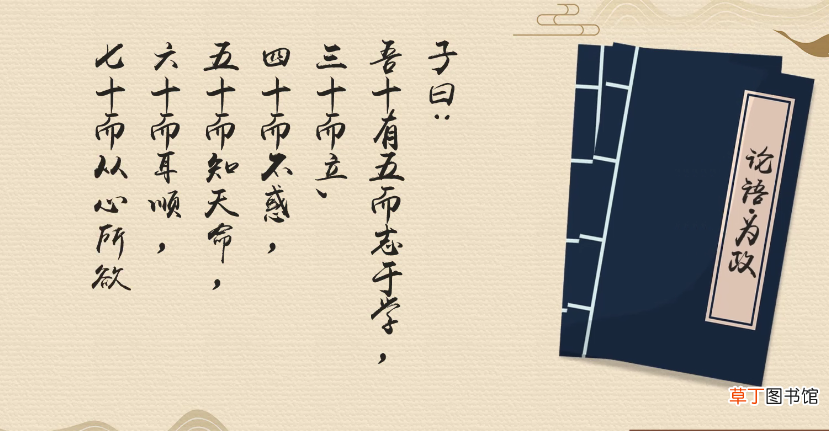 子曰：
吾十有五而志于学，
三十而立、
四十而不惑，
五十而知天命，
六十而耳顺，
七十而从心所欲
论语·为政
草丁图书馆